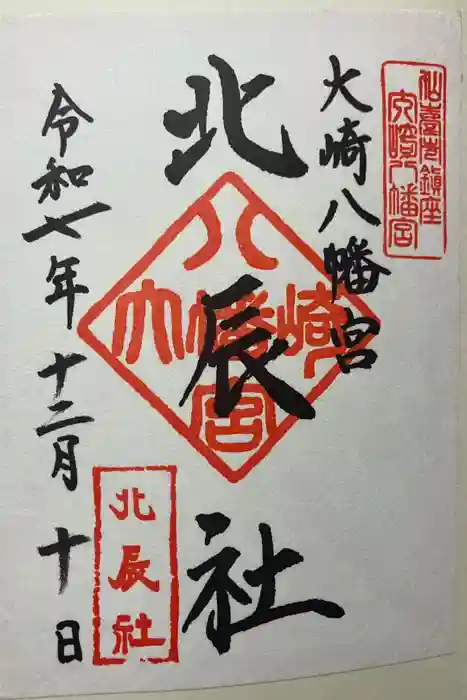 仙臺市鎮座
大崎八幡宮
大崎八幡宮
北辰社
八
大幡崎
宮
北辰社
令和七年十二月十日